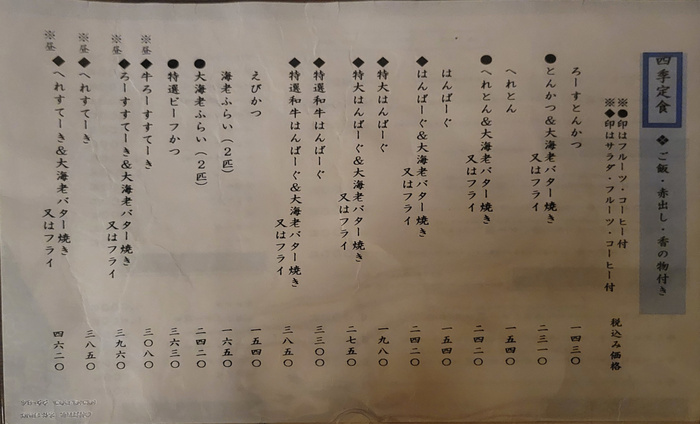 四季定食 ❖ ご飯・赤出し・香の物付き
※●印はフルーツ・コーヒー付
※◆印はサラダ・フルーツ・コーヒー付 税込み価格
ろーすとんかつ 一四三〇
●とんかつ&大海老バター焼き
又はフライ 二三一〇
へれとん 一五四〇
●へれとん&大海老バター焼き
又はフライ 二四二〇
はんばーぐ 一五四〇
◆はんばーぐ&大海老バター焼き
又はフライ 二四二〇
◆特大はんばーぐ 一九八〇
◆特大はんばーぐ&大海老バター焼き
又はフライ 二七五〇
◆特選和牛はんばーぐ 三三〇〇
◆特選和牛はんばーぐ&大海老バター焼き
又はフライ 三八五〇
えびかつ 一五四〇
海老ふらい(2匹) 一六五〇
●大海老ふらい(2匹) 二四二〇
●特選ビーフかつ 三六三〇
※昼 ◆牛ろーすすてーき 三〇八〇
※昼 ◆ろーすすてーき&大海老バター焼き
又はフライ 三九六〇
※昼 ◆へれすてーき 三八五〇
※昼 ◆へれすてーき&大海老バター焼き
又はフライ 四六二〇